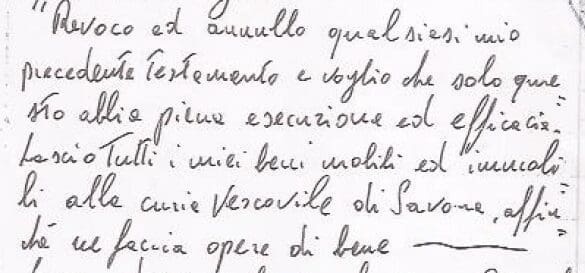 "Revoco ed annullo qualsiasi mio
precedente testamento e voglio che solo que=
sto abbia piena esecuzione ed efficacia.
Lascio tutti i miei beni mobili ed immobi=
li alla curia Vescovile di Savona, affin=
chè ne faccia opere di bene —